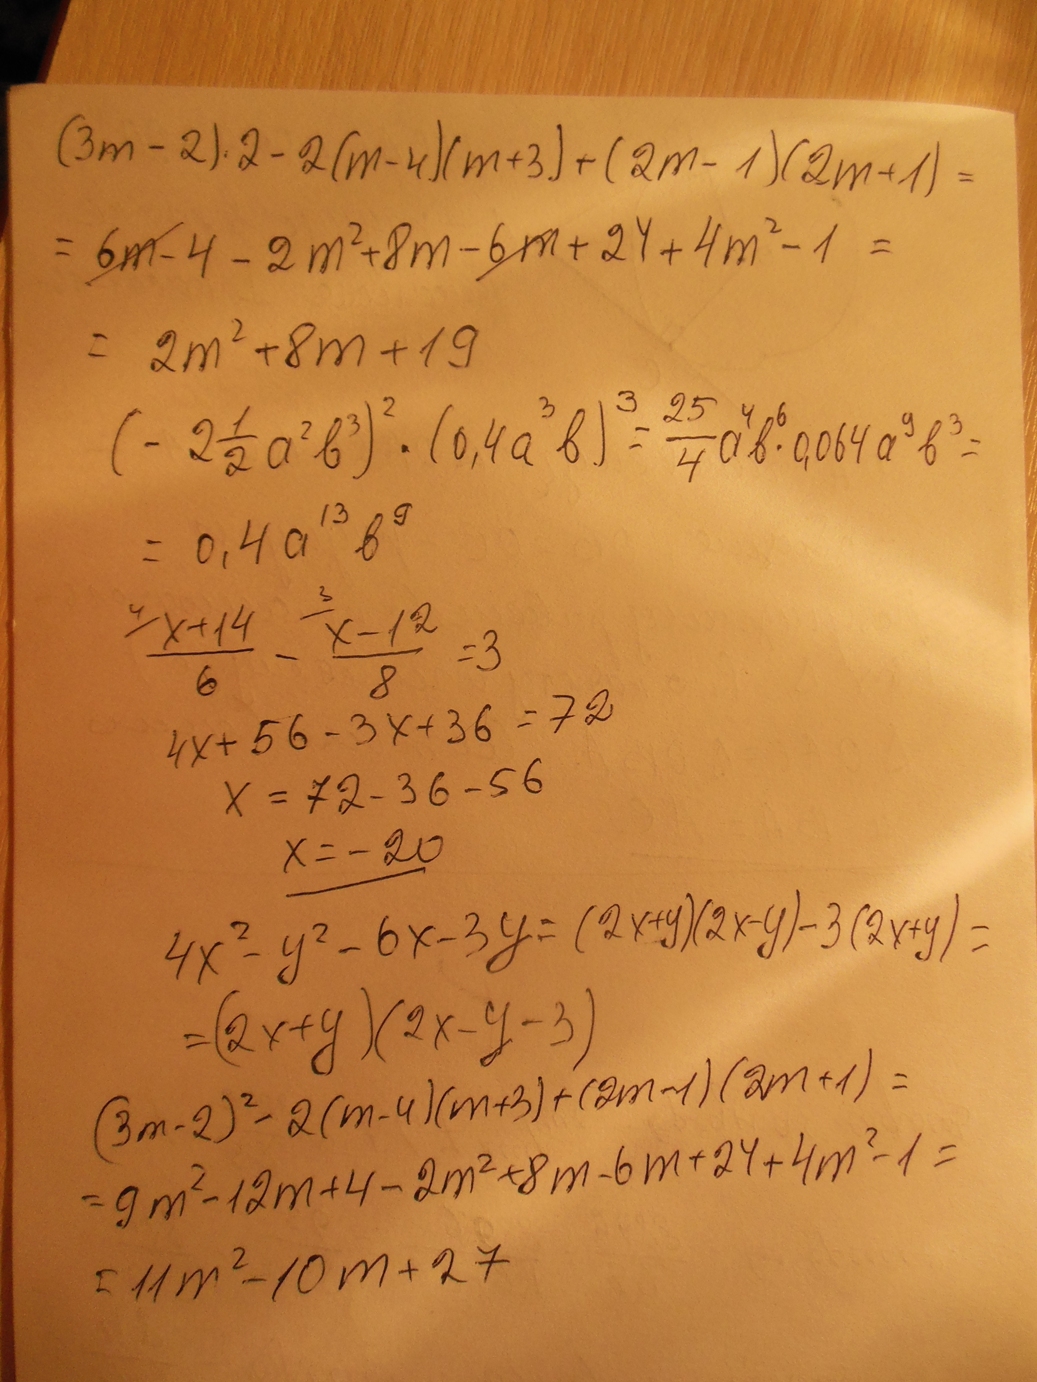 (3m-2)·2-2(m-4)(m+3)+(2m-1)(2m+1)=
=6m-4-2m²+8m-6m+24+4m²-1=
= 2m²+8m+19
(-2 1/2 a²b³)²·(0,4a³b)³=25/4 a⁴b⁶·0,064a⁹b³=
= 0,4a¹³b⁹
⁴⁄(x+14)/6 - ³⁄(x-12)/8 =3
4x+56-3x+36=72
x=72-36-56
x=-20
4x²-y²-6x-3y=(2x+y)(2x-y)-3(2x+y)=
=(2x+y)(2x-y-3)
(3m-2)²-2(m-4)(m+3)+(2m-1)(2m+1)=
=9m²-12m+4-2m²+8m-6m+24+4m²-1=
=11m²-10m+27